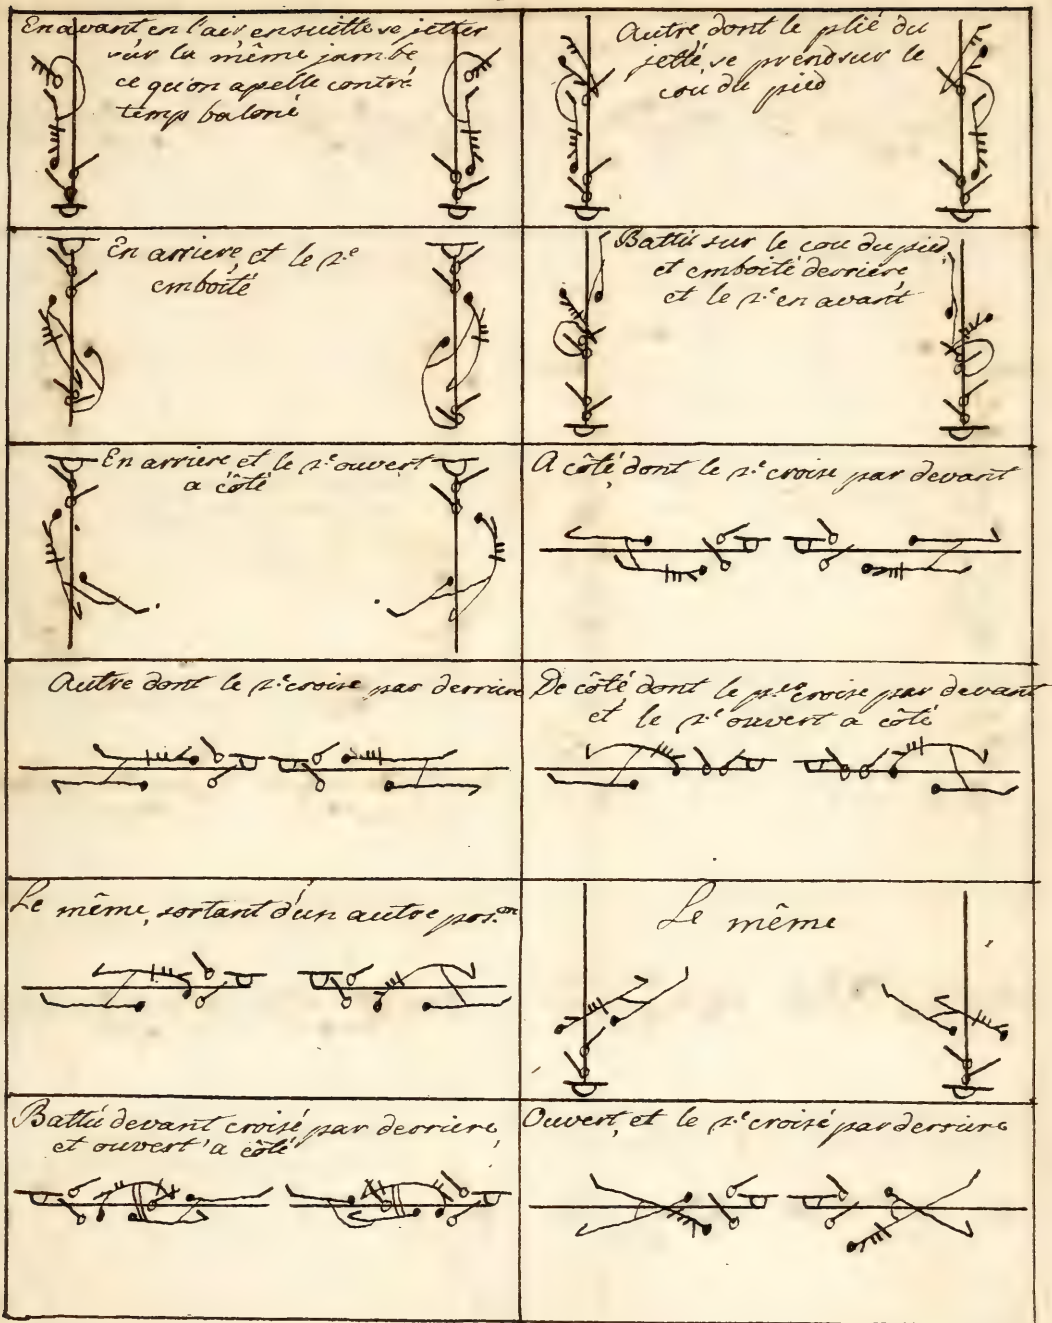 En avant en l'air ensuitte se jetter
sur la même jambe
ce qu'on apelle contre
temp baloné
Autre dont le plié du
jetté se prend sur le
cou du pied
En arriere, et le 2.e
emboîté
Battu sur le cou du pied,
et emboité derriere
et le 2.e en avant
En arriere et le 2.e ouvert
a côté
A côté, dont le 2.e croise par devant
Autre dont le 2.e croise par derriere
De côté dont le p.er croise par devant
et le 2.e ouvert a côté
Le même, sortant d'un autre pos.on
Le même
Battu devant croisé par derriere,
et ouvert a côté
Ouvert, et le 2.e croisé par derriere